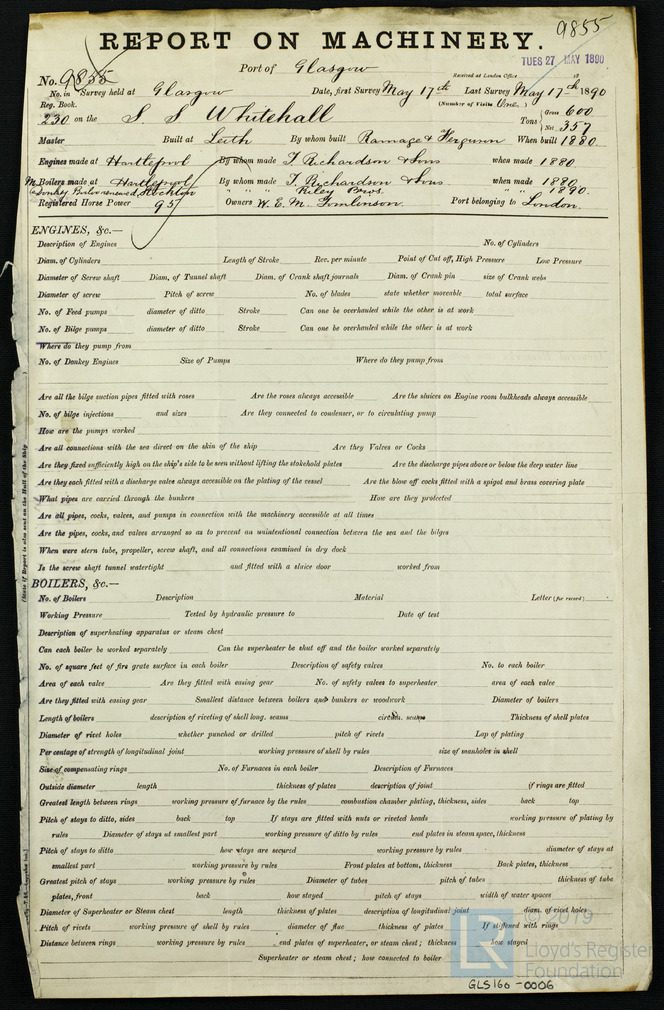 9855
REPORT ON MACHINERY.
TUES 27 MAY 1890
Port of Glasgow
No. 9855
Received at London Office 18
No. in Survey held at Glasgow Date, first Survey May 17th Last Survey May 17th 1890
Reg. Book. (Number of Visits One)
230 on the S S Whitehall Tons { Gross 600
Net 357
Master Built at Leith By whom built Ramage & Ferguson When built 1880
Engines made at Hartlepool By whom made T. Richardson & Sons when made 1880
Mn Boilers made at Hartlepool By whom made T. Richardson & Sons when made 1880
Donkey Boiler renewed Stockton " " Riley Bros. " " 1890
Registered Horse Power 95 Owners W. E. M. Tomlinson. Port belonging to London.
ENGINES, &c.—
Description of Engines No. of Cylinders
Diam. of Cylinders Length of Stroke Rev. per minute Point of Cut off, High Pressure Low Pressure
Diameter of Screw shaft Diam. of Tunnel shaft Diam. of Crank shaft journals Diam. of Crank pin size of Crank webs
Diameter of screw Pitch of screw No. of blades state whether moveable total surface
No. of Feed pumps diameter of ditto Stroke Can one be overhauled while the other is at work
No. of Bilge pumps diameter of ditto Stroke Can one be overhauled while the other is at work
Where do they pump from
No. of Donkey Engines Size of Pumps Where do they pump from
Are all the bilge suction pipes fitted with roses Are the roses always accessible Are the sluices on Engine room bulkheads always accessible
No. of bilge injections and sizes Are they connected to condenser, or to circulating pump
How are the pumps worked
Are all connections with the sea direct on the skin of the ship Are they Valves or Cocks
Are they fixed sufficiently high on the ship's side to be seen without lifting the stokehold plates Are the discharge pipes above or below the deep water line
Are they each fitted with a discharge valve always accessible on the plating of the vessel Are the blow off cocks fitted with a spigot and brass covering plate
What pipes are carried through the bunkers How are they protected
Are all pipes, cocks, valves, and pumps in connection with the machinery accessible at all times
Are the pipes, cocks, and valves arranged so as to prevent an unintentional connection between the sea and the bilges
When were stern tube, propeller, screw shaft, and all connections examined in dry dock
Is the screw shaft tunnel watertight and fitted with a sluice door worked from
BOILERS, &c.—
No. of Boilers Description Material Letter (for record)
Working Pressure Tested by hydraulic pressure to Date of test
Description of superheating apparatus or steam chest
Can each boiler be worked separately Can the superheater be shut off and the boiler worked separately
No. of square feet of fire grate surface in each boiler Description of safety valves No. to each boiler
Area of each valve Are they fitted with easing gear No. of safety valves to superheater area of each valve
Are they fitted with easing gear Smallest distance between boilers and bunkers or woodwork Diameter of boilers
Length of boilers description of riveting of shell long. seams circum. seams Thickness of shell plates
Diameter of rivet holes whether punched or drilled pitch of rivets Lap of plating
Percentage of strength of longitudinal joint working pressure of shell by rules size of manholes in shell
Size of compensating rings No. of Furnaces in each boiler Description of Furnaces
Outside diameter length thickness of plates description of joint if rings are fitted
Greatest length between rings working pressure of furnace by the rules combustion chamber plating, thickness, sides back top
Pitch of stays to ditto, sides back top If stays are fitted with nuts or riveted heads working pressure of plating by
rules Diameter of stays at smallest part working pressure of ditto by rules end plates in steam space, thickness
Pitch of stays to ditto how stays are secured working pressure by rules diameter of stays at
smallest part working pressure by rules Front plates at bottom, thickness Back plates, thickness
Greatest pitch of stays working pressure by rules Diameter of tubes pitch of tubes thickness of tube
plates, front back how stayed pitch of stays width of water spaces
Diameter of Superheater or Steam chest length thickness of plates description of longitudinal joint diam. of rivet holes
Pitch of rivets working pressure of shell by rules diameter of flue thickness of plates If stiffened with rings
Distance between rings working pressure by rules end plates of superheater, or steam chest; thickness how stayed
Superheater or steam chest; how connected to boiler
LR
© 2019
Lloyd's Register
Foundation
GLS160-0006